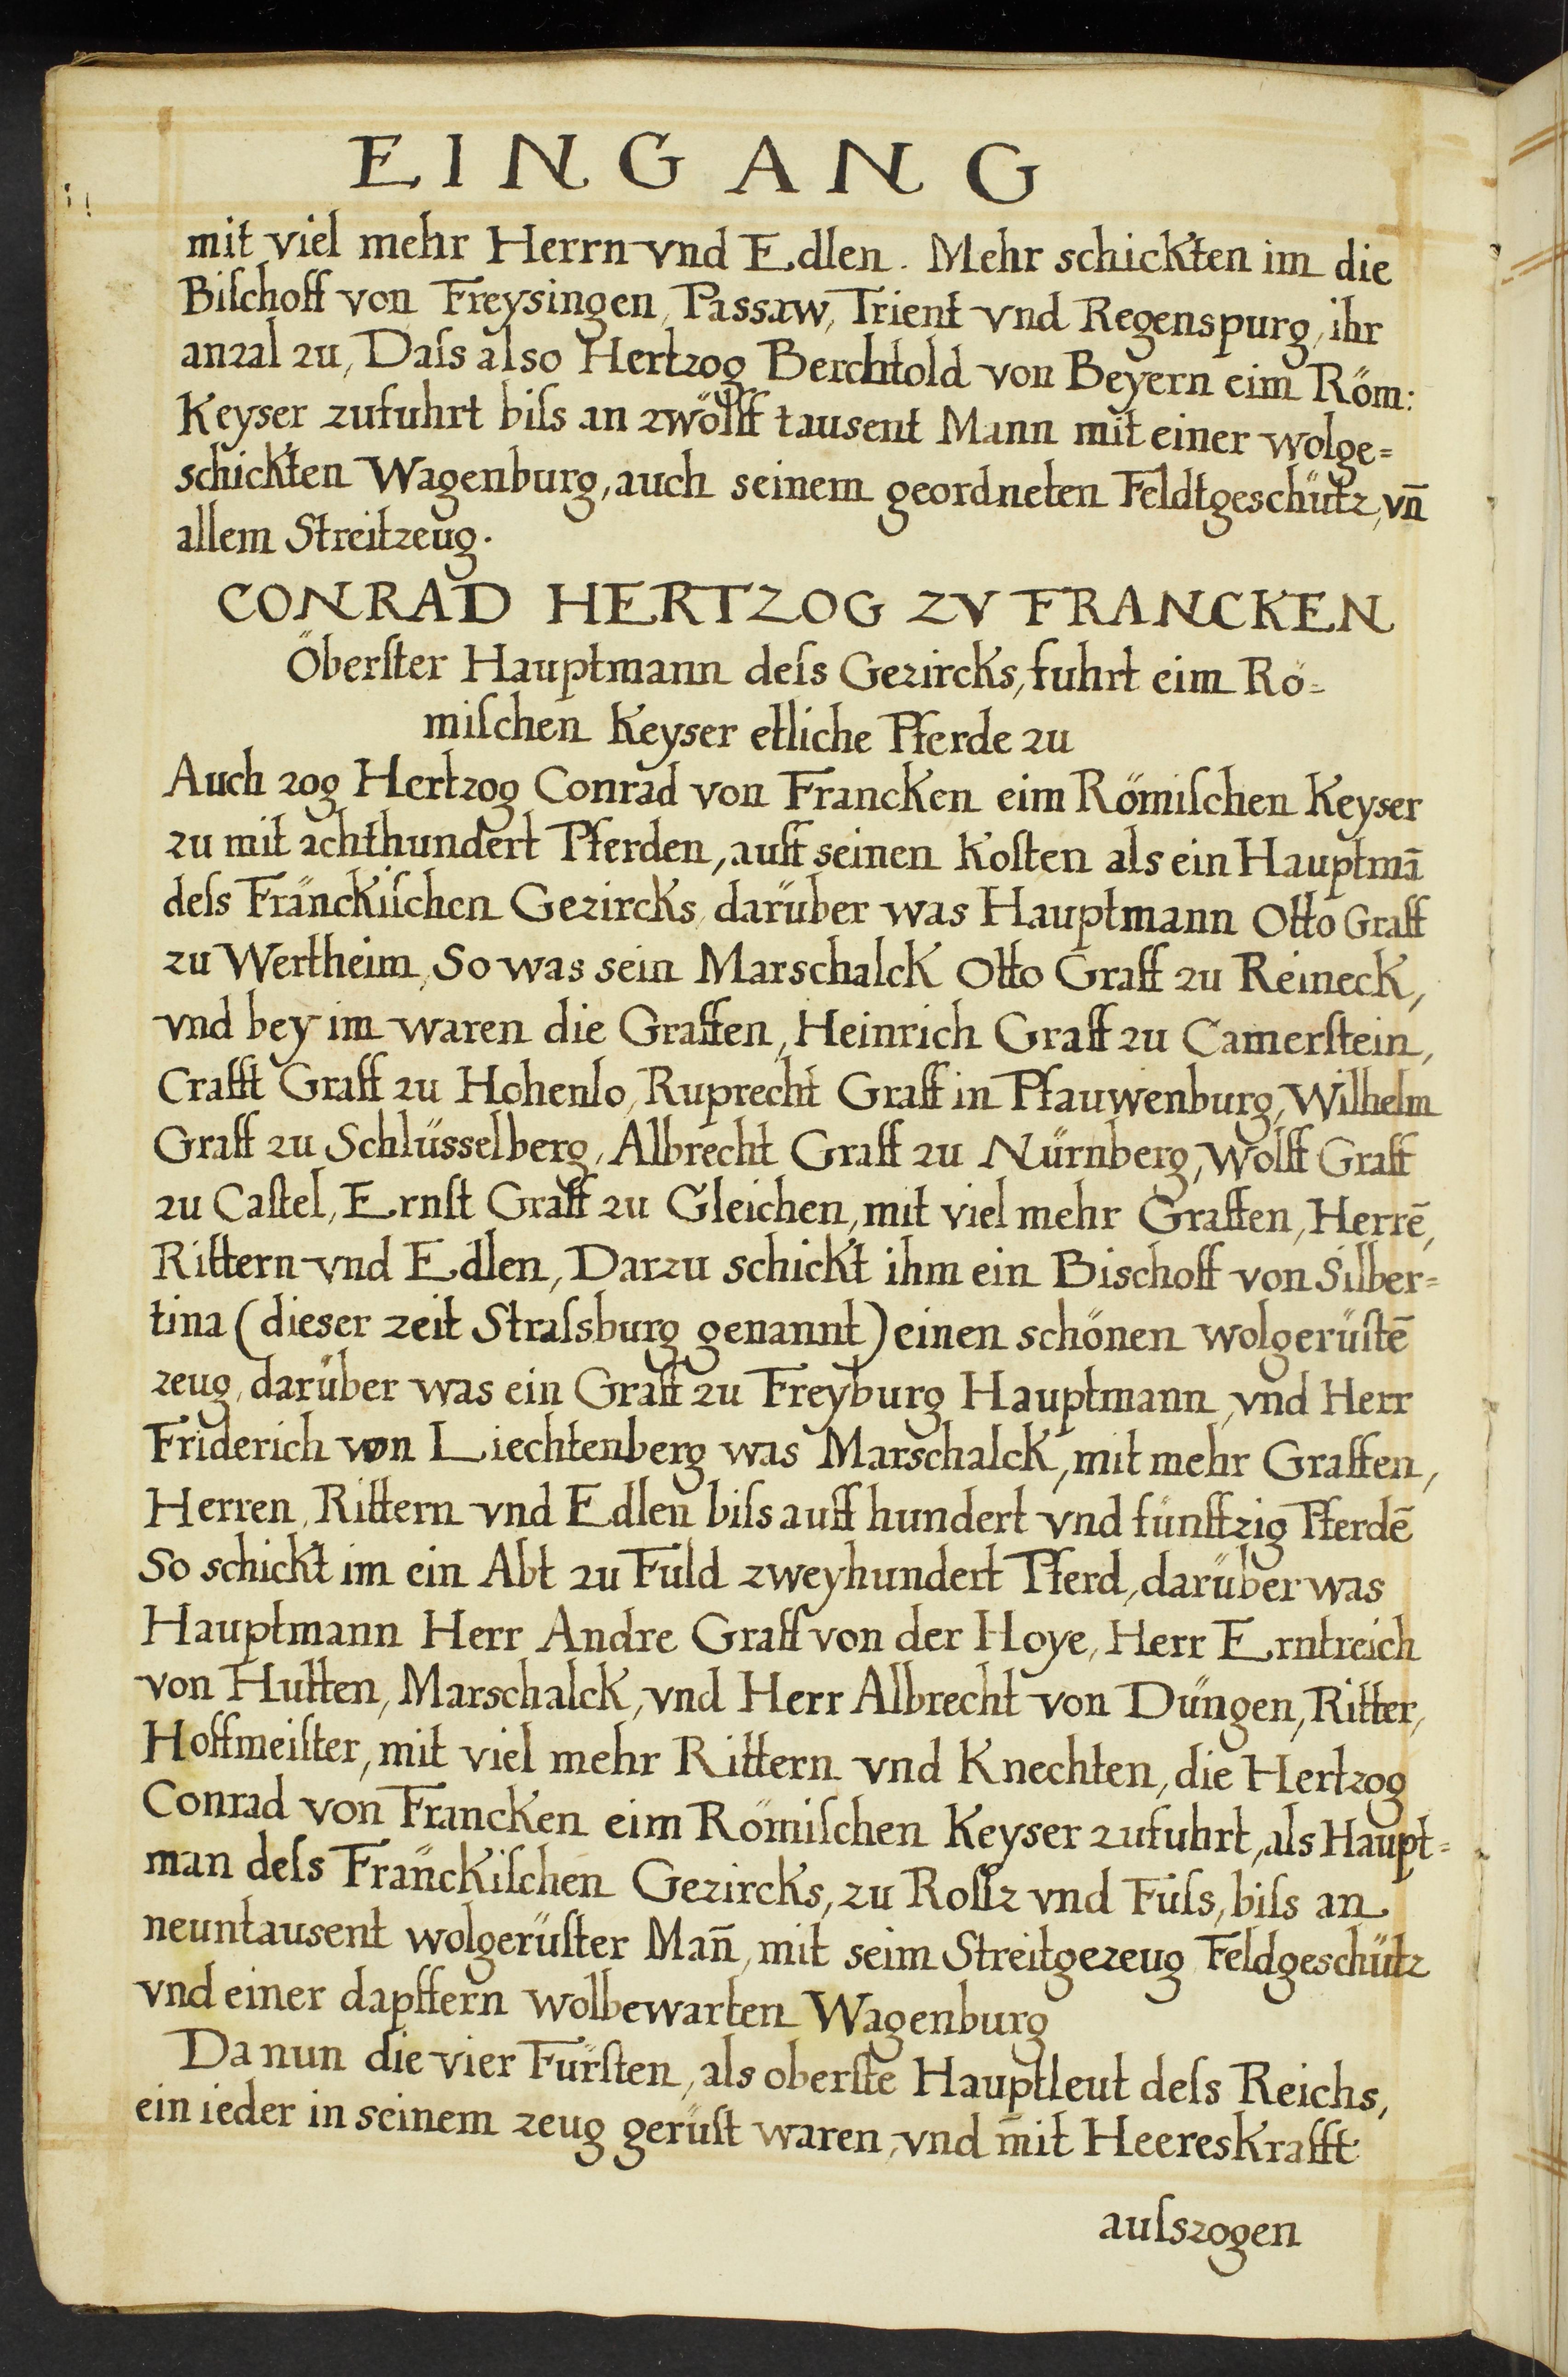 EINGANG
mit viel mehr Herrn vnd Edlen. Mehr schickten im die
Biſchoff von Freysingen, Passaw, Trient vnd Regenspurg, ihr
anzal zu, Daſs also Hertzog Berchtold von Beyern eim Röm:
Keyser zufuhrt biſs an zwölff tausent Mann mit einer wolge=
schickten Wagenburg, auch seinem geordneten Feldtgeschütz, vn̄
allem Streitzeug.
CONRAD HERTZOG ZV FRANCKEN
Öberſter Hauptmann deſs Gezircks, fuhrt eim Rö=
miſchen Keyser etliche Pferde zu
Auch zog Hertzog Conrad von Francken eim Römiſchen Keyser
zu mit achthundert Pferden, auff seinen Koſten als ein Hauptmā
deſs Fränckiſchen Gezircks, darüber was Hauptmann Otto Graff
zu Wertheim, So was sein Marschalck Otto Graff zu Reineck,
vnd bey im waren die Graffen, Heinrich Graff zu Camerſtein,
Crafft Graff zu Hohenlo, Ruprecht Graff in Pfauwenburg, Wilhelm
Graff zu Schlüsselberg, Albrecht Graff zu Nürnberg, Wolff Graff
zu Caſtel, Ernſt Graff zu Gleichen, mit viel mehr Graffen, Herrē,
Rittern vnd Edlen, Darzu schickt ihm ein Bischoff von Silber=
tina (dieser zeit Straſsburg genannt) einen schönen wolgerüſtē
zeug, darüber was ein Graff zu Freyburg Hauptmann, vnd Herr
Friderich von Liechtenberg was Marschalck, mit mehr Graffen,
Herren, Rittern vnd Edlen biſs auff hundert vnd fünffzig Pferdē
So schickt im ein Abt zu Fuld zweyhundert Pferd, darüber was
Hauptmann Herr Andre Graff von der Hoye, Herr Erntreich
von Hutten, Marschalck, vnd Herr Albrecht von Düngen, Ritter,
Hoffmeiſter, mit viel mehr Rittern vnd Knechten, die Hertzog
Conrad von Francken eim Römiſchen Keyser zufuhrt, als Haupt=
man deſs Fränckiſchen Gezircks, zu Roſſz vnd Fuſs, biſs an
neuntausent wolgerüſter Man̄, mit seim Streitgezeug Feldgeschütz
vnd einer dapffern wolbewarten Wagenburg
Da nun die vier Fürſten, als oberſte Hauptleut deſs Reichs,
ein ieder in seinem zeug gerüſt waren, vnd mit Heereskrafft
auſszogen